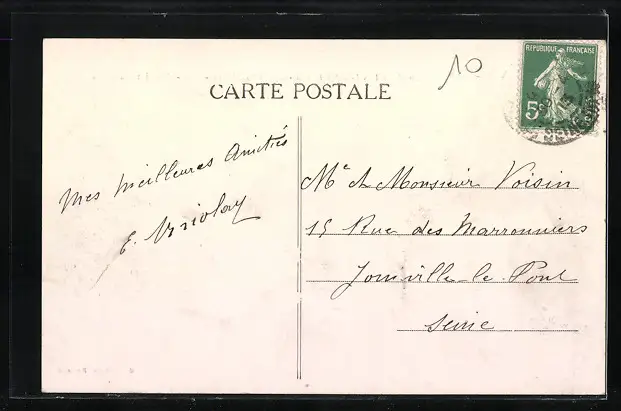 10
REPUBLIQUE FRANÇAISE
5c
CARTE POSTALE
Mes meilleures Amitiés
E.
Me et Monsieur Voisin
15 Rue des Marronniers
Joinville-le-Pont
Seine